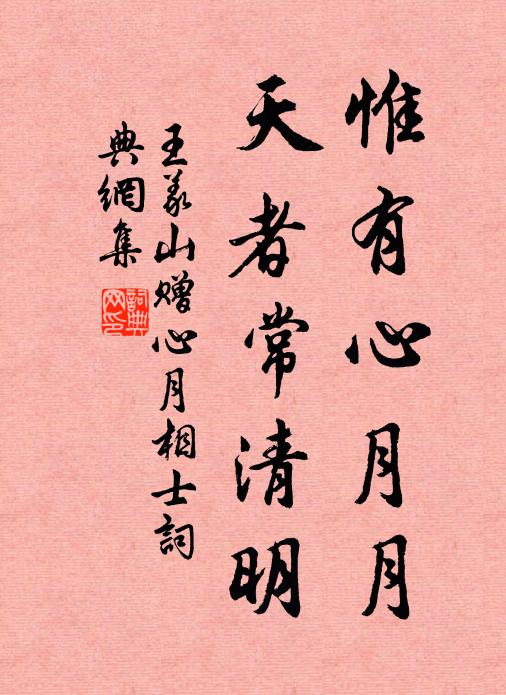 惟有心月月
天者常清明
王義山贈心月相士詞
典網集
詞典網印